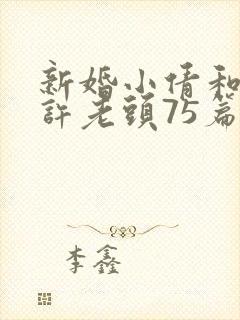 新婚小倩和
許老頭75篇
李鑫